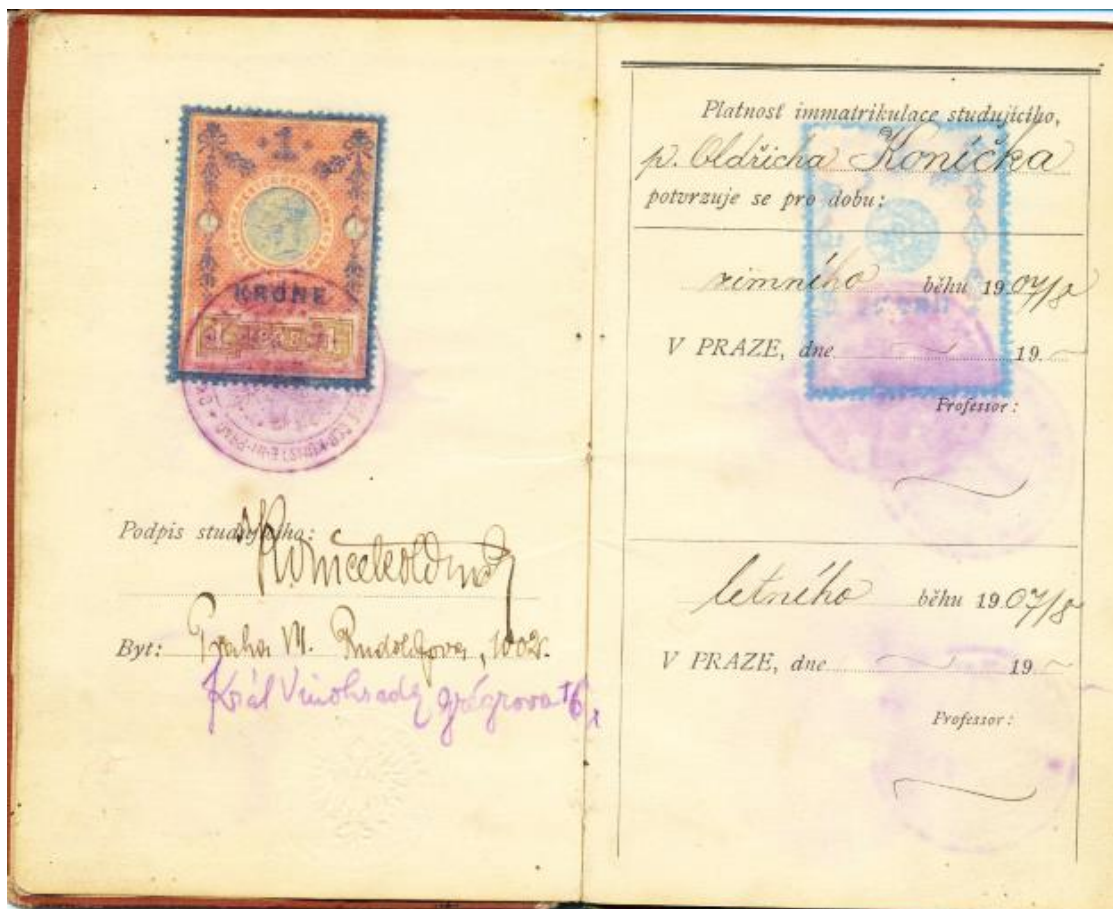 1
KRONE
Podpis studujícího:
Koníček Oldřich
Byt: Praha VI. Rudolfova, 1002.
Král Vinohrady Grégrova 16
Platnost immatrikulace studujícího,
p. Oldřicha Koníčka
potvrzuje se pro dobu:
zimního běhu 1907/8
V PRAZE, dne 19
Professor:
letního běhu 1907/8
V PRAZE, dne 19
Professor: